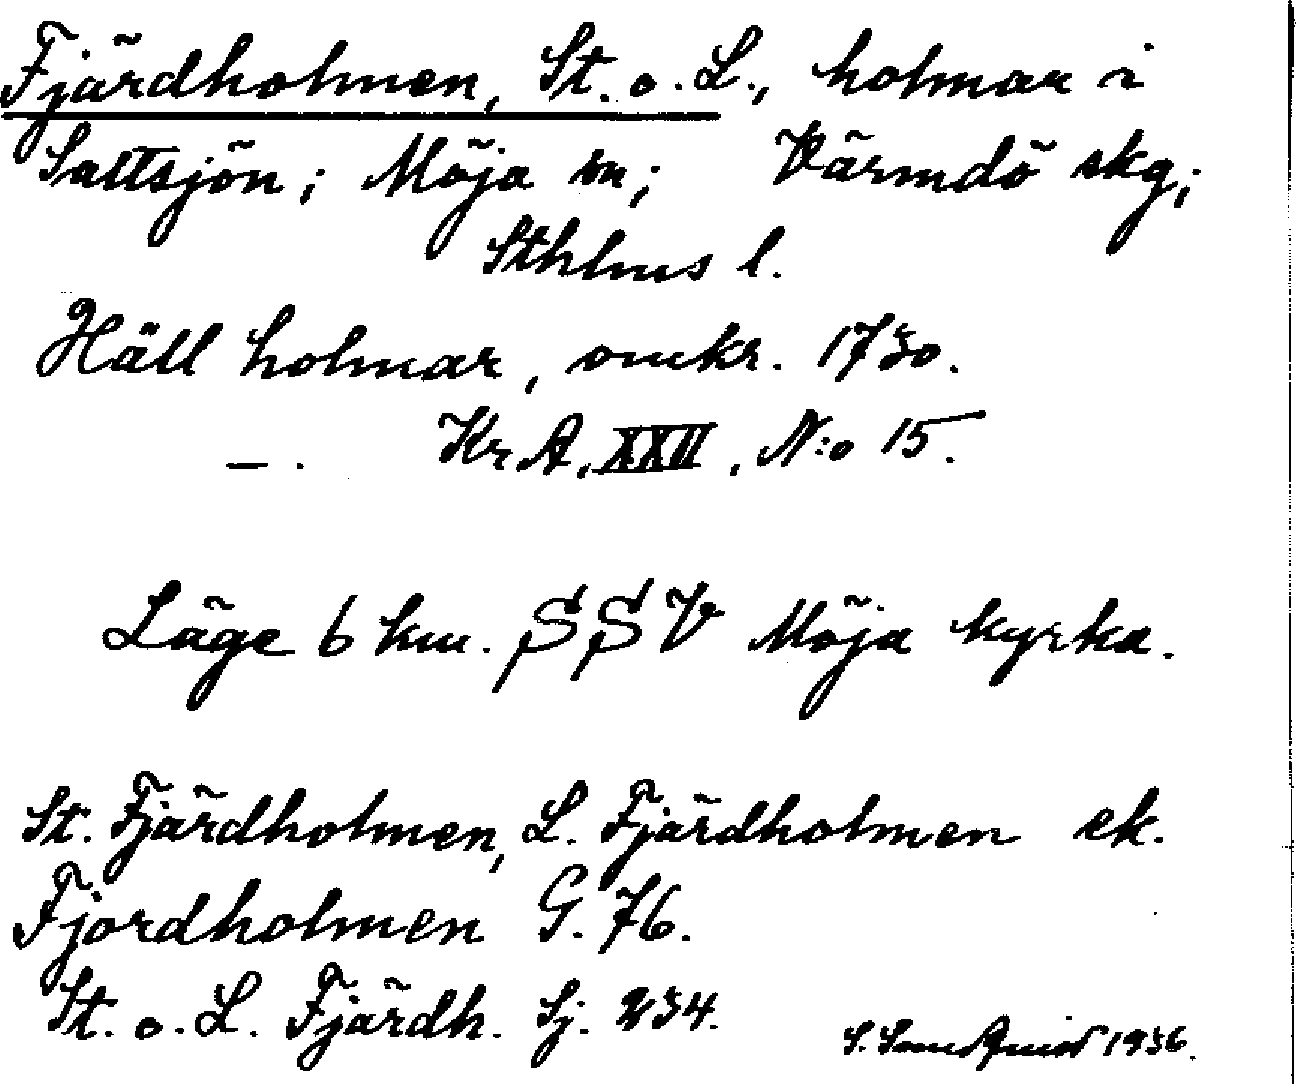 Fjärdholmen, St. o. L., holmar i
Saltsjön; Möja sn; Värmdö skg;
Sthlms l.
Häll holmar, omkr. 1730.
— . Kr A, XXII, N:o 15.
Läge 6 km. SSV Möja kyrka.
St. Fjärdholmen, L. Fjärdholmen ek.
Fjordholmen G. 76.
St. o. L. Fjärdh. Sj. 234.
S. 1936.